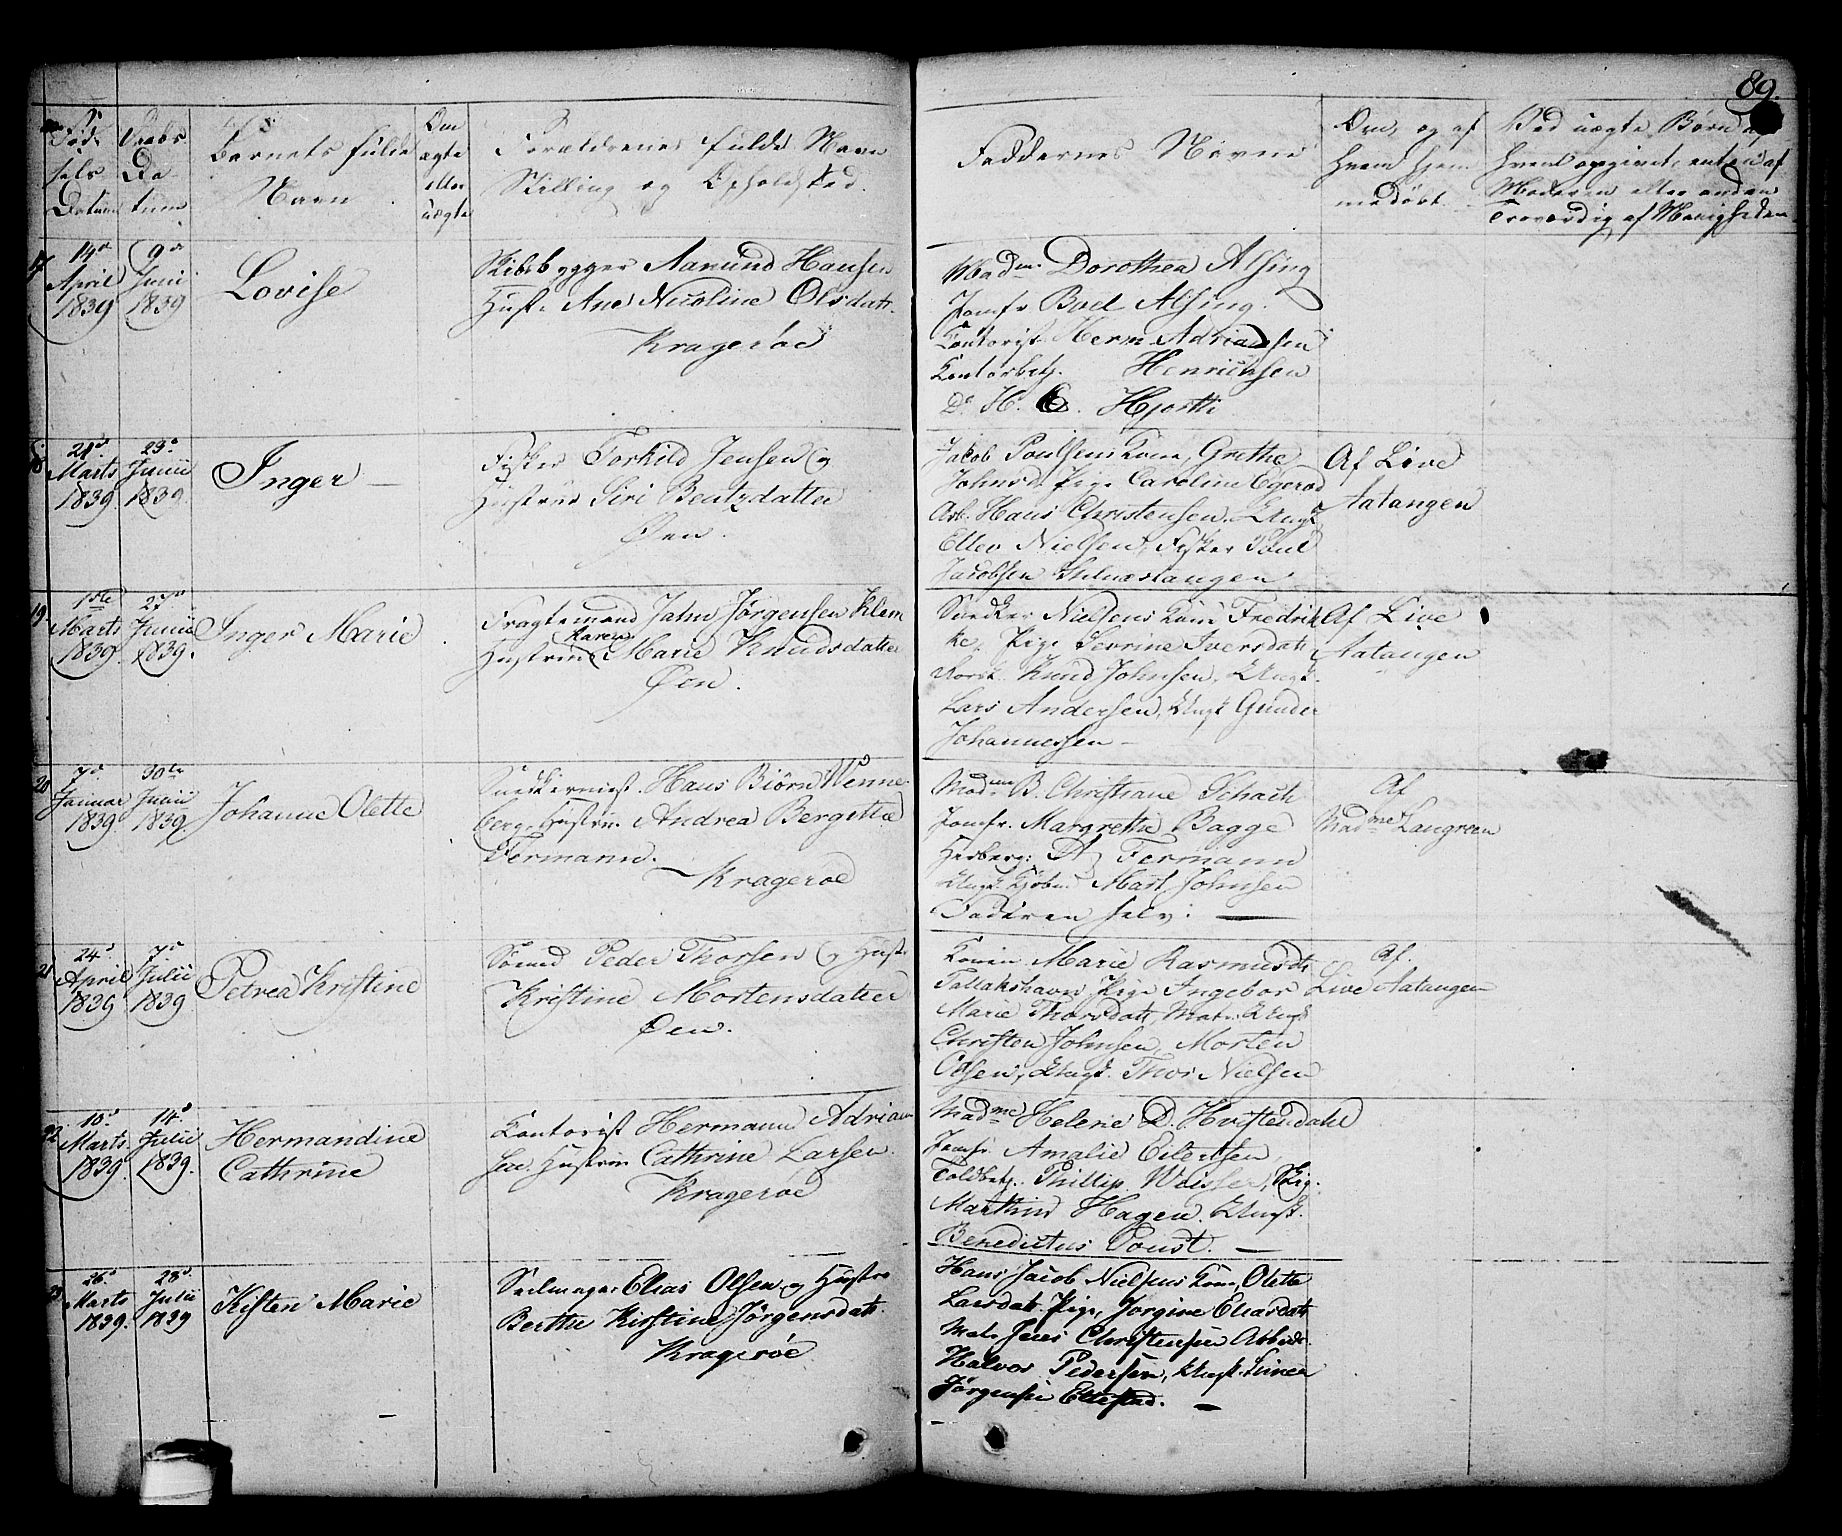 89.
Fød-
sels
Datum
Daabs
Da
tum
Barnets fulde
Navn
Om
ægte
eller
uægte
Forældrenes fulde Navn
Stilling og Opholdsted.
Faddernes Navne
Om, og af
hvem hjem
medøbt.
Ved uægte Børn af
hvem opgivet, enten af
Moderen eller anden
Troværdig af Menigheden
17
14de
April
1839
9de
Juni
1839
Lovise
Skibsbygger Aamund Hansen
Hust. Ane Nicoline Olsdatr.
Kragerøe
Madm. Dorothea Alsing
Jomfr Boel Alsing.
Contorist Herm. Adriansen
Contorbetj. Henrichsen
Do H. C. Hjorth
18
21d.
Marts
1839.
23d
Junii
1839.
Inger
Fisker Torkild Jensen og
Hustrue Siri Bentzdatter
Øen.
Jacob Poulsens Kone, Grethe
Johnsd. Pige Caroline Egerod
Arb. Hans Christensen, Ungk.
Ellev Nielsen, Fisker Poul
Jacobsen
Af Live
Aatangen
19
1ste
Marts
1839.
27d
Junii
1839.
Inger Marie
Fragtemand Jahn Jørgensen Klem
Hustrue Karen Marie Knudsdatter
Øen.
Nielsens Kone Fredrik
ke, Pige Severine Iversdatr
Knud Johnsen, Ungk.
Lars Andersen, Ungk Gunder
Johannessen
Af Live
Aatangen
20
7d
Januar
1839
30te
Junii
1839.
Johanne Olette
Snedkermest. Hans Biørn Wenne
berg, Hustrue Andrea Bergitte
Fermann.
Kragerøe
Madm B. Christiane Schack
Jomfr. Margrethe Bagge
A Fermann
Ungk. Kjøbm Mart. Johnsen
Faderen selv:
Af
Madme Langreen
21
24d
April
1839
7d
Julii
1839
Petrea Kristine
Sømd Peder Thorsen og Hust.
Kristine Mortensdatter
Øen.
Konen Marie Rasmusdt
Tallakshavn Pige Ingebor
Marie Thorsdatr, Mat. Ungk
Christen Johnsen, Morten
Olsen, Ungk. Thor Nielsen
Af.
Live Aatangen
22
10d
Marts
1839
14d
Julii
1839.
Hermandine
Cathrine
Contorist Hermann Adrian
sen, Hustrue Cathrine Larsen.
Kragerøe
Madme Helene D. Hvistendahl
Jomfr. Amalie Eilertsen
Toldbetj. Phillip Weisser, Skig.
Marthin Hagen. Ungk.
Benedictus Poust.
23
26d
Marts
1839.
28d.
Julii
1839
Kisten Marie
Seilmager Elias Olsen og Hustru
Berthe Kirstine Jørgensdatr.
Kragerøe
Hans Jacob Nielsens Kone, Olette
Larsdatr. Pige, Jorgine Eliasdatr
Mat. Jens Christensen
Halvor Pedersen, Ungk.
Jørgensen Ellestad.